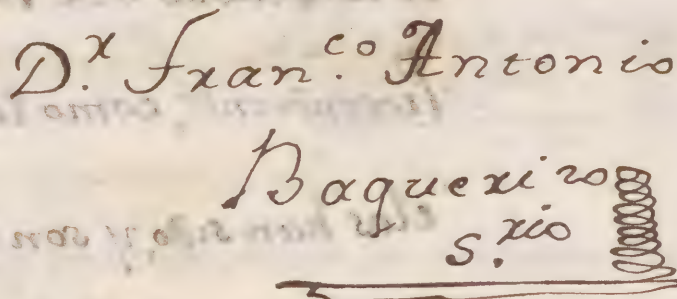 D.r Fran.co Antonio
Baquerizo
s.rio